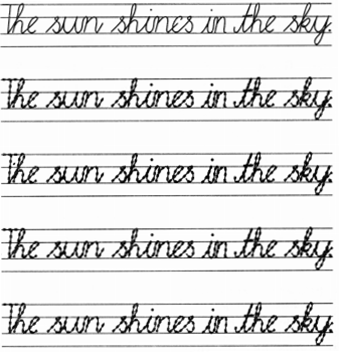 The sun shines in the sky.
The sun shines in the sky.
The sun shines in the sky.
The sun shines in the sky.
The sun shines in the sky.